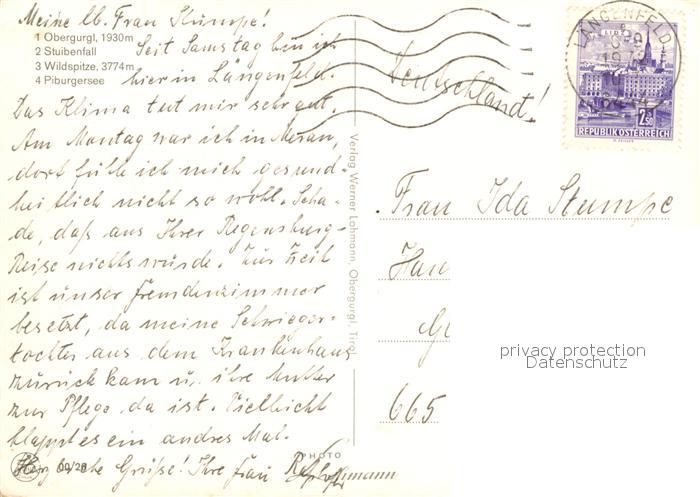 Meine lb. Frau Stumpe!
1 Obergurgl, 1930m
2 Stuibenfall
3 Wildspitze, 3774m
4 Piburgersee
Seit Samstag bin ich
hier in Längenfeld.
Das Klima tut mir sehr gut.
Am Montag war ich in Meran,
dort fühlte ich mich gesund-
heitlich nicht so wohl. Scha-
de, daß aus Ihrer Regensburg-
Reise nichts wurde. Zur Zeit
ist unser Fremdenzimmer
besetzt, da meine Schwieger-
tochter aus dem Krankenhaus
zurück kam u. ihre Mutter
zur Pflege da ist. Vielleicht
klappt es ein andres Mal.
Herzliche Grüße! Ihre Frau
60/28
PHOTO
Verlag Werner Lohmann, Obergurgl, Tirol
LÄNGENFELD
LINZ
2.50
REPUBLIK ÖSTERREICH
Deutschland!
Frau Ida Stumpe
Han
665
privacy protection
Datenschutz